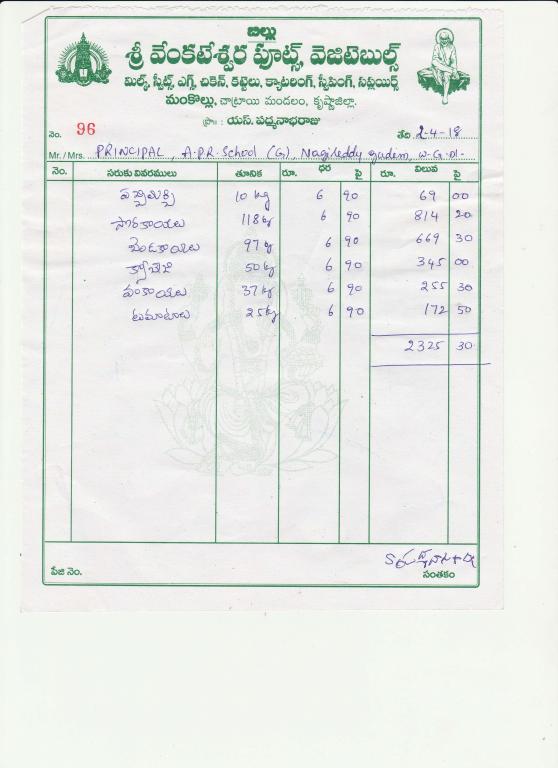 బిల్లు
శ్రీ వేంకటేశ్వర ఫ్రూట్స్, వెజిటెబుల్స్
మిల్క్, స్వీట్స్, ఎగ్స్, చికెన్, కట్టెలు, క్యాటరింగ్, స్వీపింగ్, సప్లయిర్స్
మంకొల్లు, చాట్రాయి మండలం, కృష్ణాజిల్లా.
ప్రొ॥ : యస్. పద్మనాభరాజు
నెం. 96 తేది 2-4-18
Mr./Mrs. PRINCIPAL, A.P.R. School (G), Nagireddy gudem, W.G.Dt.
నెం. సరుకు వివరములు తూనిక రూ. ధర పై రూ. విలువ పై
10 kg 6 90 69 00
సొరకాయలు 118 kg 6 90 814 20
బెండకాయలు 97 kg 6 90 669 30
క్యాబేజి 50 kg 6 90 345 00
వంకాయలు 37 kg 6 90 255 30
టమాటాలు 25 kg 6 90 172 50
2325 30
పేజి నెం. సంతకం